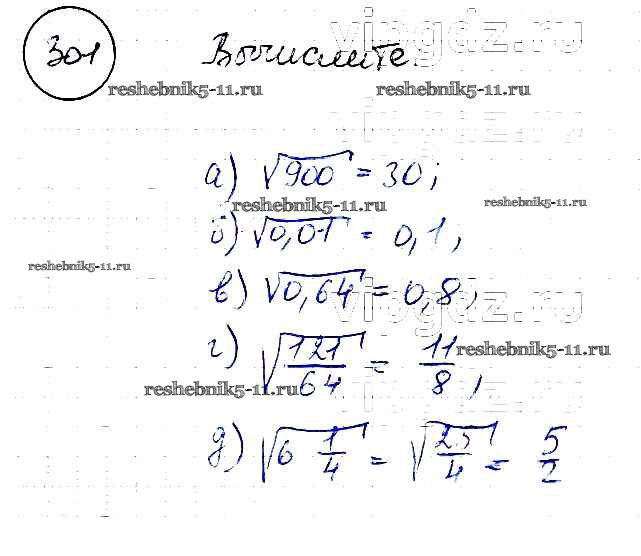 vipgdz.ru
301 Вычислите.
reshebnik5-11.ru reshebnik5-11.ru
vipgdz.ru
а) √900 = 30;
reshebnik5-11.ru reshebnik5-11.ru
б) √0,01 = 0,1,
reshebnik5-11.ru
в) √0,64 = 0,8,
vipgdz.ru
г) √121/64 = 11/8,
reshebnik5-11.ru
reshebnik5-11.ru
vipgdz.ru
д) √6 1/4 = √25/4 = 5/2